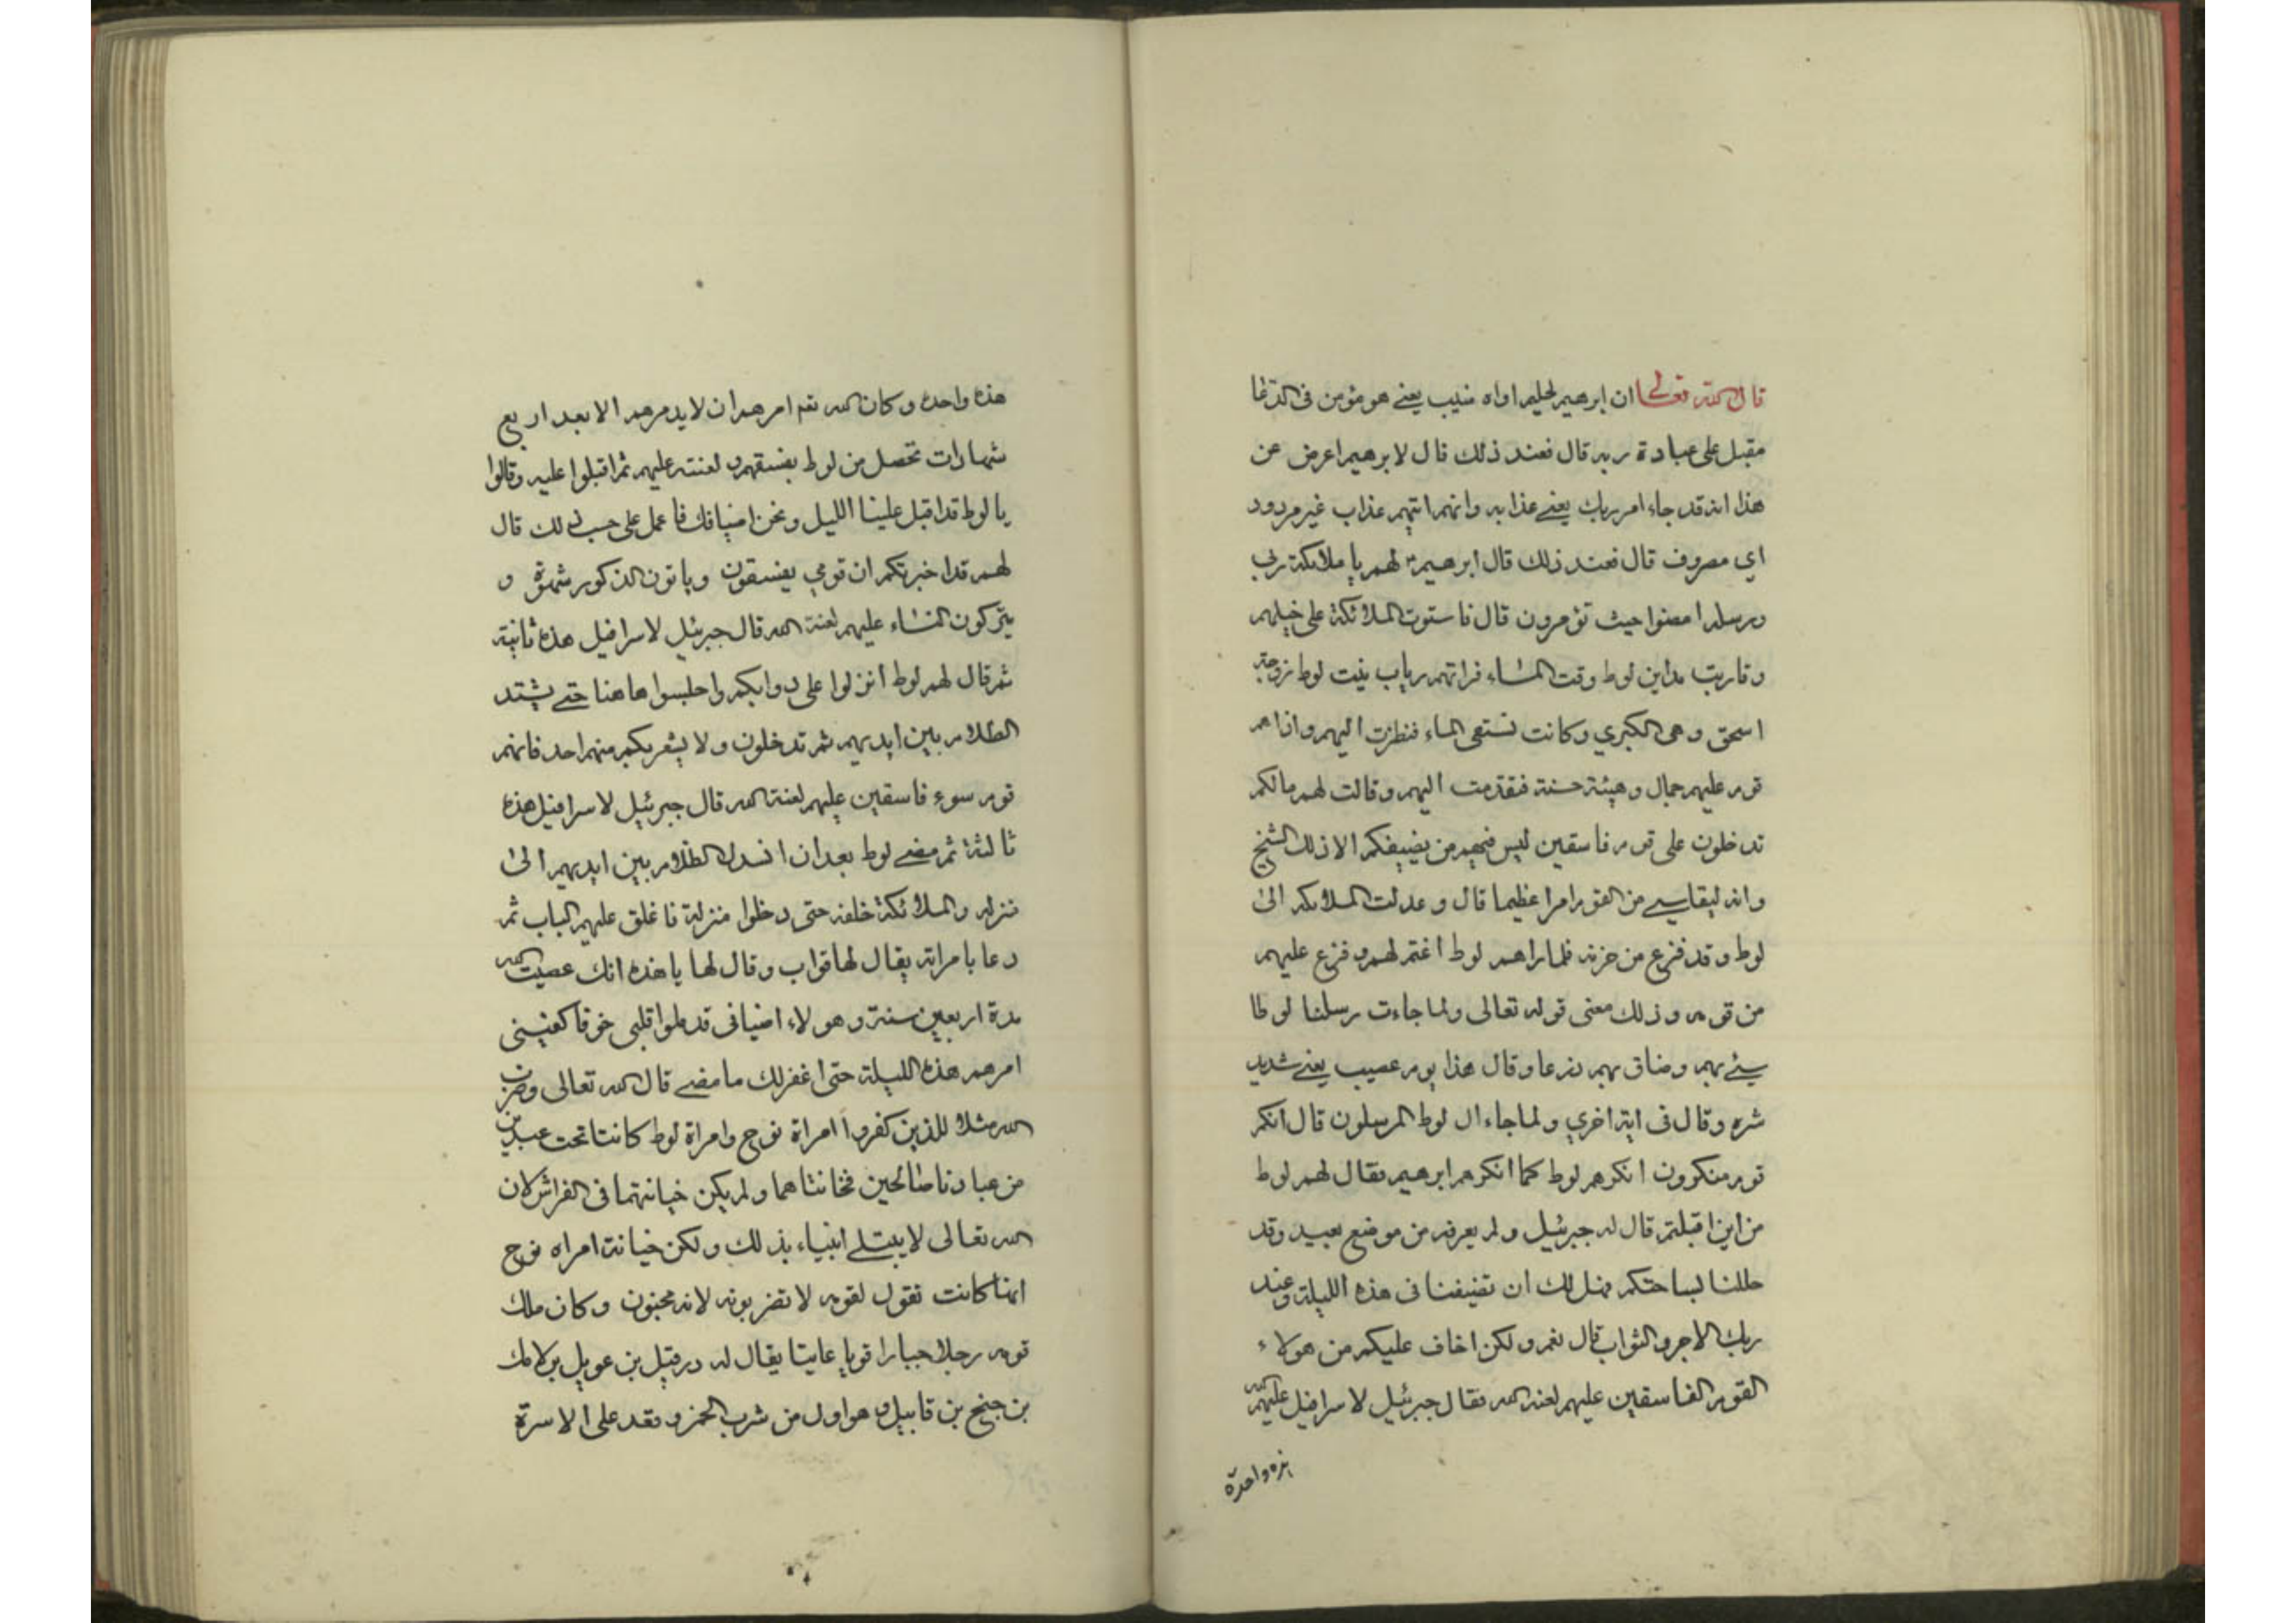 قال الله تعالى ان ابرهيم لحليم اواه منيب يعني هو مؤمن في الدعا
مقبل على عبادة ربه قال فعند ذلك قال لابرهيم اعرض عن
هذا انه قد جاء امر ربك يعني عذابه وانهم اتيهم عذاب غير مردود
اي مصروف قال فعند ذلك قال ابرهيم لهم يا ملائكة ربي
ورسله امضوا حيث تؤمرون قال فاستوت الملائكة على خيلهم
وقاربت مداين لوط وقت المساء فراتهم رباب بنت لوط زوجة
اسحق وهي الكبري وكانت تستقي الماء فنظرت اليهم واذا هم
قوم عليهم جمال وهيئة حسنة فتقدمت اليهم وقالت لهم مالكم
تدخلون على قوم فاسقين ليس فيهم من يضيفكم الا ذلك الشيخ
وانه ليقاسي من القوم امرا عظيما قال وعدلت الملائكه الى
لوط وقد فزع من حزنه فلما راهم لوط اغتم لهم وفزع عليهم
من قومه وذلك معنى قوله تعالى ولما جاءت رسلنا لوطا
سيئ بهم وضاق بهم ذرعا وقال هذا يوم عصيب يعني شديد
شره وقال في اية اخري ولما جاء ال لوط المرسلون قال انكم
قوم منكرون انكرهم لوط كما انكرهم ابرهيم فقال لهم لوط
من اين اقبلتم قال له جبرئيل ولم يعرفه من موضع بعيد وقد
حللنا بساحتكم فهل لك ان تضيفنا في هذه الليلة وعند
ربك الاجر والثواب قال نعم ولكن اخاف عليكم من هولاء
القوم الفاسقين عليهم لعنة الله فقال جبرئيل لاسرافيل عليهم
هذه واحدة
هذه واحده وكان الله تعم امرهم ان لا يدمرهم الا بعد اربع
شهادات تحصل من لوط بفسقهم ولعنته عليهم ثم اقبلوا عليه وقالوا
يا لوط قد اقبل علينا الليل ونحن اضيافك فاعمل على حسب ذلك قال
لهم قد اخبرتكم ان قومي يفسقون وياتون الذكور شهوة و
يتركون النساء عليهم لعنة الله قال جبرئيل لاسرافيل هذه ثانية
ثم قال لهم لوط انزلوا على دوابكم واجلسوا هاهنا حتي يشتد
الظلام بين ايديهم ثم تدخلون ولا يشعر بكم منهم احد فانهم
قوم سوء فاسقين عليهم لعنة الله قال جبرئيل لاسرافيل هذه
ثالثة ثم مضي لوط بعد ان انسدل الظلام بين ايديهم الى
منزله والملائكة خلفه حتى دخلوا منزله فاغلق عليهم الباب ثم
دعا بامراته يقال لها قواب وقال لها يا هذه انك عصيت الله
مدة اربعين سنة وهولاء اضيافي قد ملوا قلبي خوفا كفيني
امرهم هذه الليلة حتى اغفر لك ما مضي قال الله تعالى وضرب
الله مثلا للذين كفروا امراة نوح وامراة لوط كانتا تحت عبدين
من عبادنا صالحين فخانتاهما ولم يكن خيانتهما في الفراش لان
الله تعالى لا يبتلي انبياء بذلك ولكن خيانة امراه نوح
انها كانت تقول لقومه لا تضربونه لانه مجنون وكان ملك
قومه رجلا جبارا قويا عاتيا يقال له درقيل بن عويل بن لامك
بن جنيح بن قابيل وهو اول من شرب الخمر وقعد على الاسرة